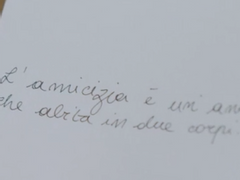 L'amicizia è un'
che abita in due corpi